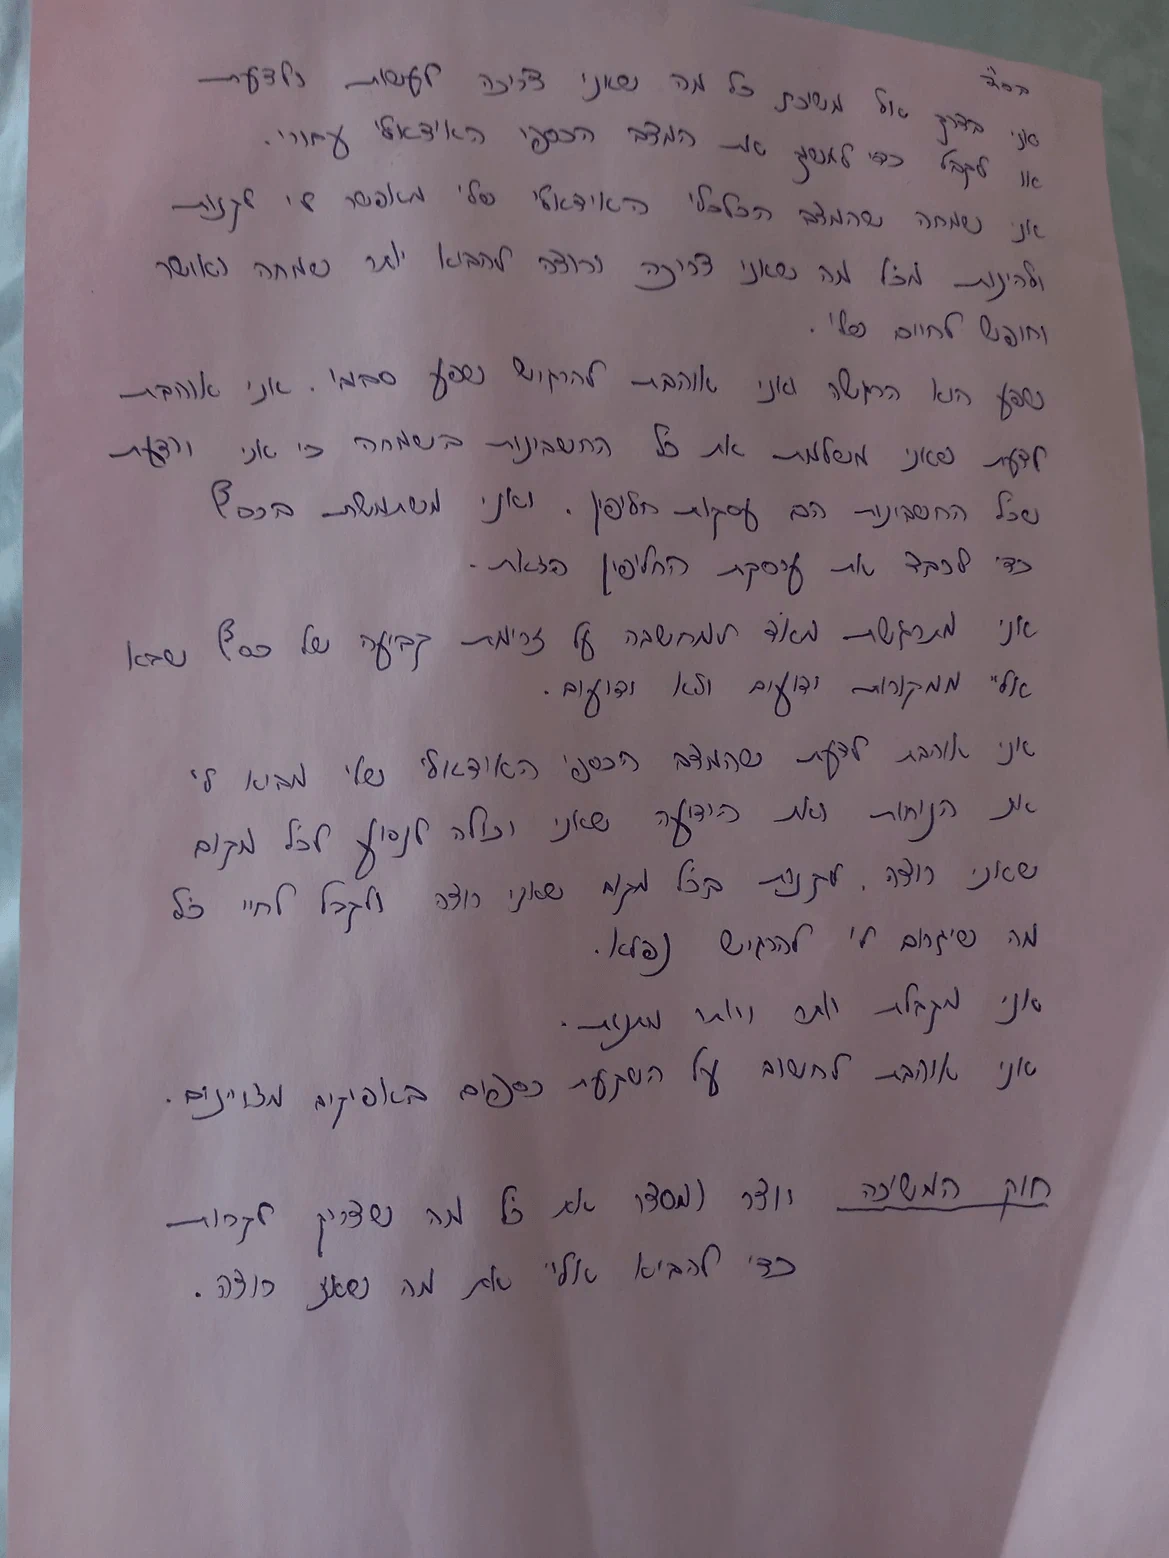 בס"ד
אני בדרך אל משיכת כל מה שאני צריכה לעשות ולדעת
או לקבל כדי למשוך את המצב הכספי האידאלי עבורי.
אני שמחה שהמצב הכלכלי האידאלי שלי מאפשר לי לקנות
ולהינות מכל מה שאני צריכה ורוצה להביא יותר שמחה ואושר
וחופש לחיים שלי.
שפע הוא הרגשה ואני אוהבת להרגיש שפע סביבי. אני אוהבת
לדעת שאני משלמת את כל החשבונות בשמחה כי אני יודעת
שכל החשבונות הם עסקות חליפין. ואני משתמשת בכסף
כדי לכבד את עסקת החליפין הזאת.
אני מתרגשת מאוד למחשבה על זרימת קביעה של כסף שבא
אלי ממקורות ידועים ולא ידועים.
אני אוהבת לדעת שהמצב הכספי האידאלי שלי מביא לי
את הנוחות ואת הידיעה שאני יכולה לנסוע לכל מקום
שאני רוצה, לקנות בכל מקום שאני רוצה ולקבל לחיי כל
מה שיגרום לי להרגיש נפלא.
אני מקבלת יותר ויותר מתנות.
אני אוהבת לחשוב על השקעת כספים באפיקים מצויינים.
חוק המשיכה יוצר ומסדר את כל מה שצריך לקרות
כדי להביא אלי את מה שאני רוצה.